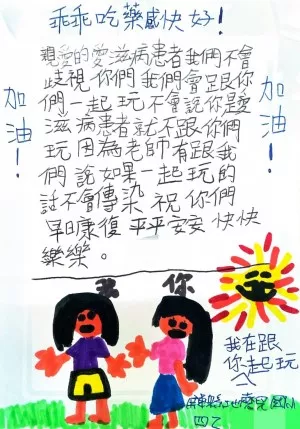 乖乖吃藥感快好!
親愛的愛滋病患者我們不會
歧視你們我們會跟你
們一起玩不會說你是愛
滋病患者就不跟你們
玩因為老師有跟我
們說如果一起玩的
話不會傳染祝你們
早日康復平平安安快快
樂樂。
加油!
加油!
我
你
我在跟
你一起玩
四乙